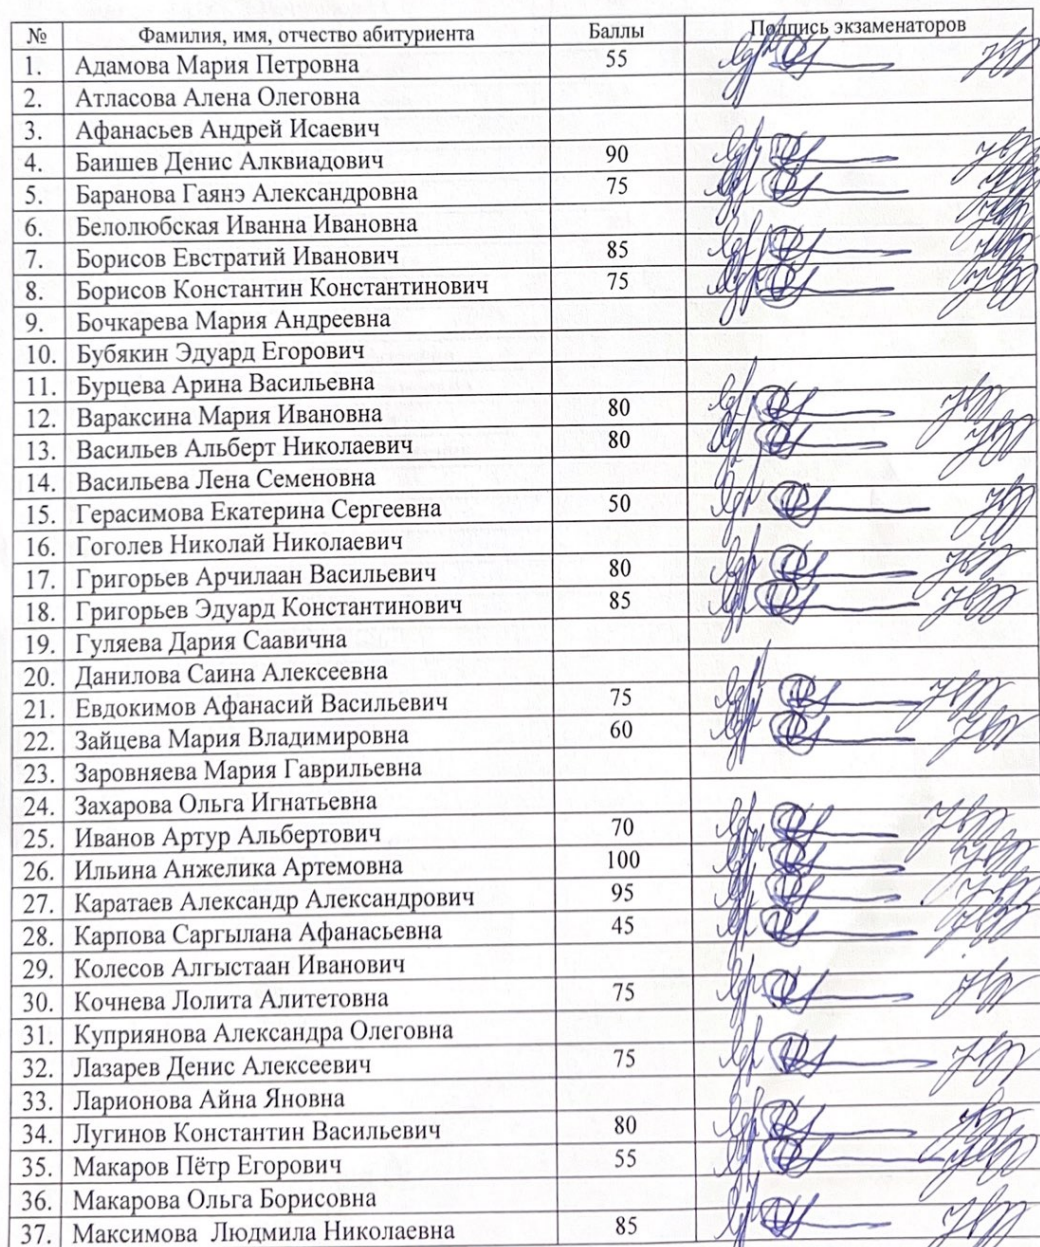 № Фамилия, имя, отчество абитуриента Баллы Подпись экзаменаторов
1. Адамова Мария Петровна 55
2. Атласова Алена Олеговна
3. Афанасьев Андрей Исаевич
4. Баишев Денис Алквиадович 90
5. Баранова Гаянэ Александровна 75
6. Белолюбская Иванна Ивановна
7. Борисов Евстратий Иванович 85
8. Борисов Константин Константинович 75
9. Бочкарева Мария Андреевна
10. Бубякин Эдуард Егорович
11. Бурцева Арина Васильевна
12. Вараксина Мария Ивановна 80
13. Васильев Альберт Николаевич 80
14. Васильева Лена Семеновна
15. Герасимова Екатерина Сергеевна 50
16. Гоголев Николай Николаевич
17. Григорьев Арчилаан Васильевич 80
18. Григорьев Эдуард Константинович 85
19. Гуляева Дария Саавична
20. Данилова Саина Алексеевна
21. Евдокимов Афанасий Васильевич 75
22. Зайцева Мария Владимировна 60
23. Заровняева Мария Гаврильевна
24. Захарова Ольга Игнатьевна
25. Иванов Артур Альбертович 70
26. Ильина Анжелика Артемовна 100
27. Каратаев Александр Александрович 95
28. Карпова Саргылана Афанасьевна 45
29. Колесов Алгыстаан Иванович
30. Кочнева Лолита Алитетовна 75
31. Куприянова Александра Олеговна
32. Лазарев Денис Алексеевич 75
33. Ларионова Айна Яновна
34. Лугинов Константин Васильевич 80
35. Макаров Пётр Егорович 55
36. Макарова Ольга Борисовна
37. Максимова Людмила Николаевна 85